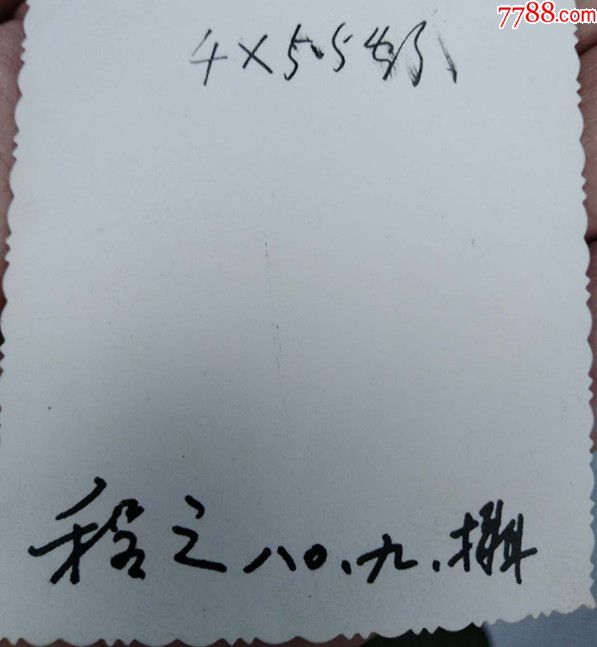 7788.com
4×5.5
之 八〇.九.攝